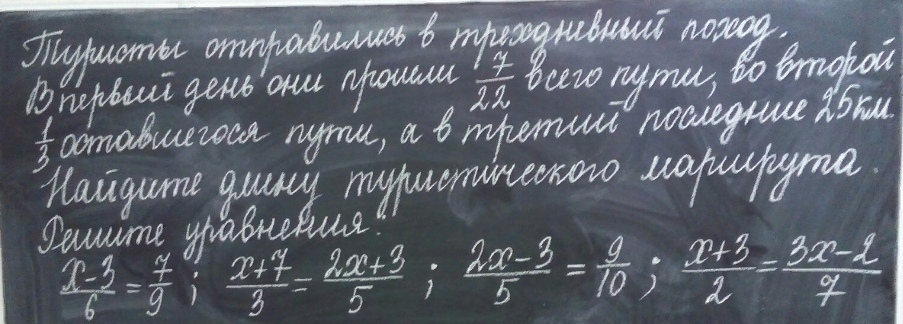 Туристы отправились в трехдневный поход.
В первый день они прошли 7/22 всего пути, во второй
1/3 оставшегося пути, а в третий последние 25 км.
Найдите длину туристического маршрута.
Решите уравнения:
x-3/6 = 7/9 ; x+7/3 = 2x+3/5 ; 2x-3/5 = 9/10 ; x+3/2 = 3x-2/7